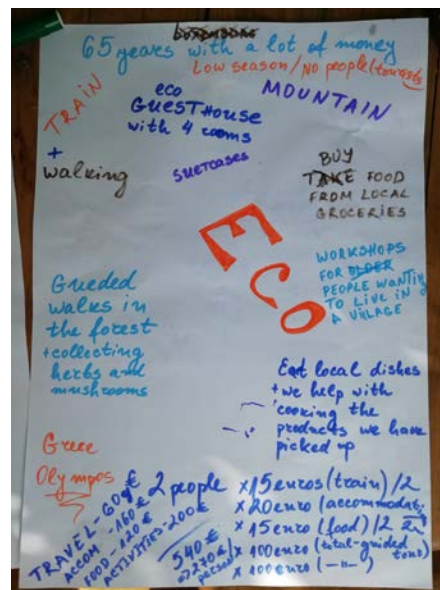 65 years with a lot of money
LOW SEASON/NO people/tourists
TRAIN
+
walking
eco
GUESTHOUSE
with 4 rooms
MOUNTAIN
suetcases
BUY
TAKE FOOD
FROM LOCAL
GROCERIES
ECO
WORKSHOPS
FOR OLDER
PEOPLE WANTING
TO LIVE IN
A VILLAGE
Gueded
walks in
the forest
+collecting
herbs and
mushrooms
Eat local dishes
+we help with
cooking the
products we have
picked up
Grece
Olympos
TRAVEL-60€
ACCOM-160€
FOOD-120€
ACTIVITIES-200€
2 people
540€
=>270€/
person
×15euros(train)/2
×20euro(accommodation)
×15euro(food)/2
×100euro(total-guided
×100euro(-"-)